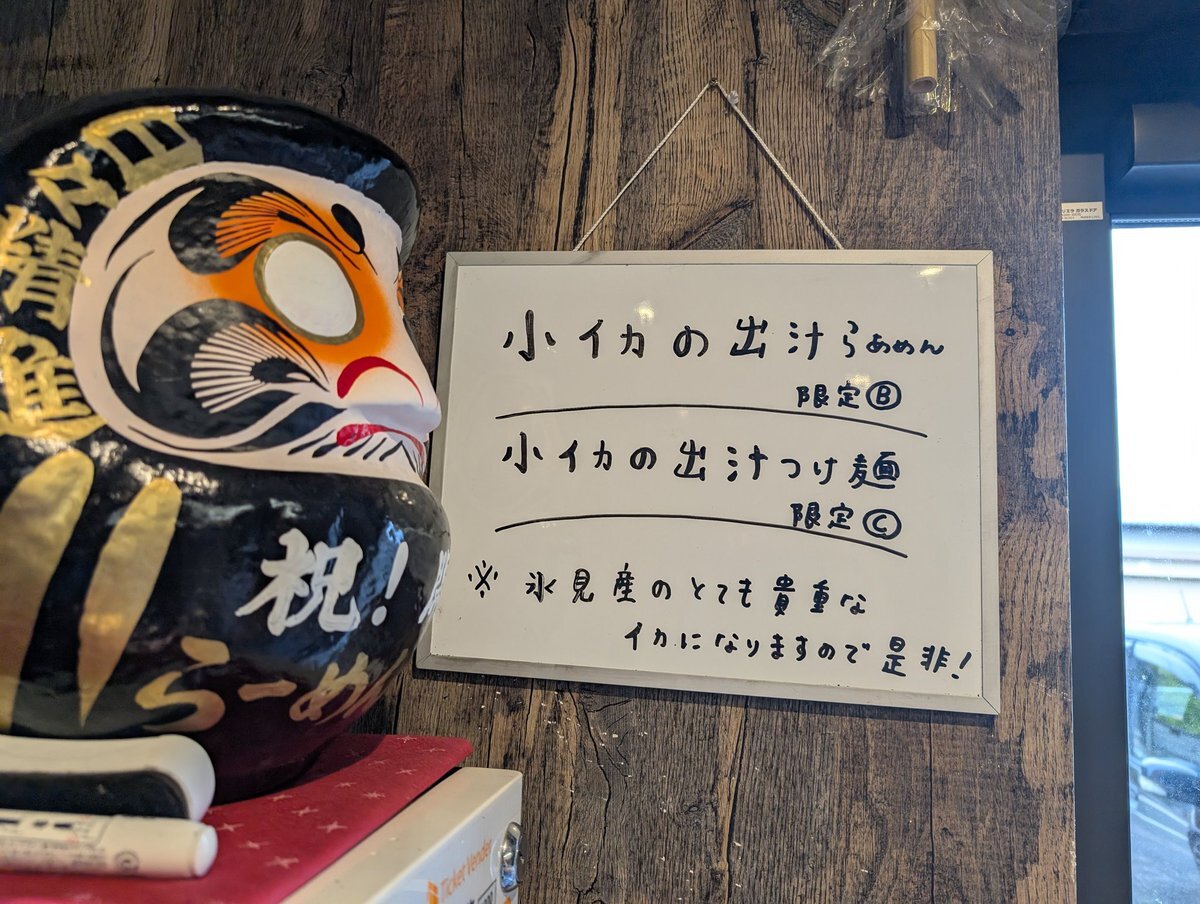 小イカの出汁らぁめん
限定Ⓑ
小イカの出汁つけ麺
限定Ⓒ
※ 氷見産のとても貴重な
イカになりますので是非!
祝!
らーめん
Ticket Vender